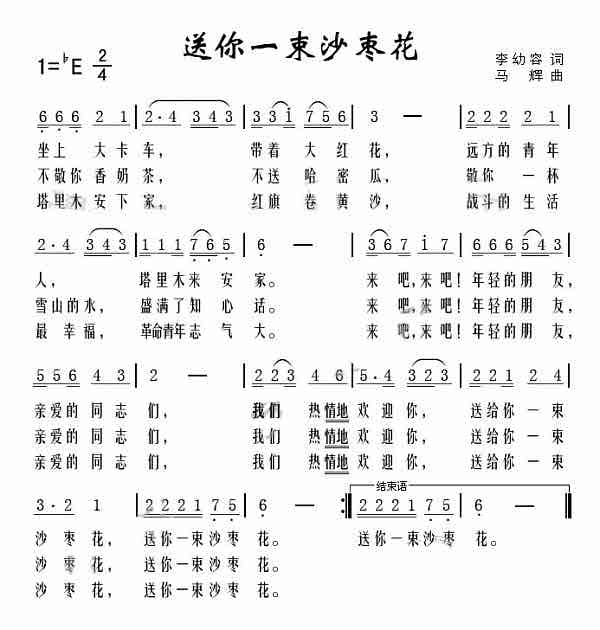 送你一束沙枣花
1=♭E 2/4
李幼容 词
马辉 曲
6 6 6 2 1 | 2·4 3 4 3 | 3 3 1 7 5 6 | 3 — | 2 2 2 2 1 |
坐上 大卡车, 带着 大红花, 远方的青年
不敬你香奶茶, 不送 哈密瓜, 敬你 一杯
塔里木安下家, 红旗 卷黄沙, 战斗的生活
2·4 3 4 3 | 1 1 1 7 6 5 | 6 — | 3 6 7 1 7 | 6 6 6 5 4 3 |
人, 塔里木来安家。 来吧,来吧!年轻的朋友,
雪山的水, 盛满了知心话。 来吧,来吧!年轻的朋友,
最幸福, 革命青年志气大。 来吧,来吧!年轻的朋友,
5 5 6 4 3 | 2 — | 2 2 3 4 6 | 5·4 3 2 3 | 2 2 1 2 4 |
亲爱的同志们, 我们 热情地欢迎你, 送给你一束
亲爱的同志们, 我们 热情地欢迎你, 送给你一束
亲爱的同志们, 我们 热情地欢迎你, 送给你一束
结束语
3·2 1 | 2 2 2 1 7 5 | 6 — :| 2 2 2 1 7 5 | 6 — ‖
沙枣花, 送你一束沙枣花。 送你一束沙枣花。
沙枣花, 送你一束沙枣花。
沙枣花, 送你一束沙枣花。